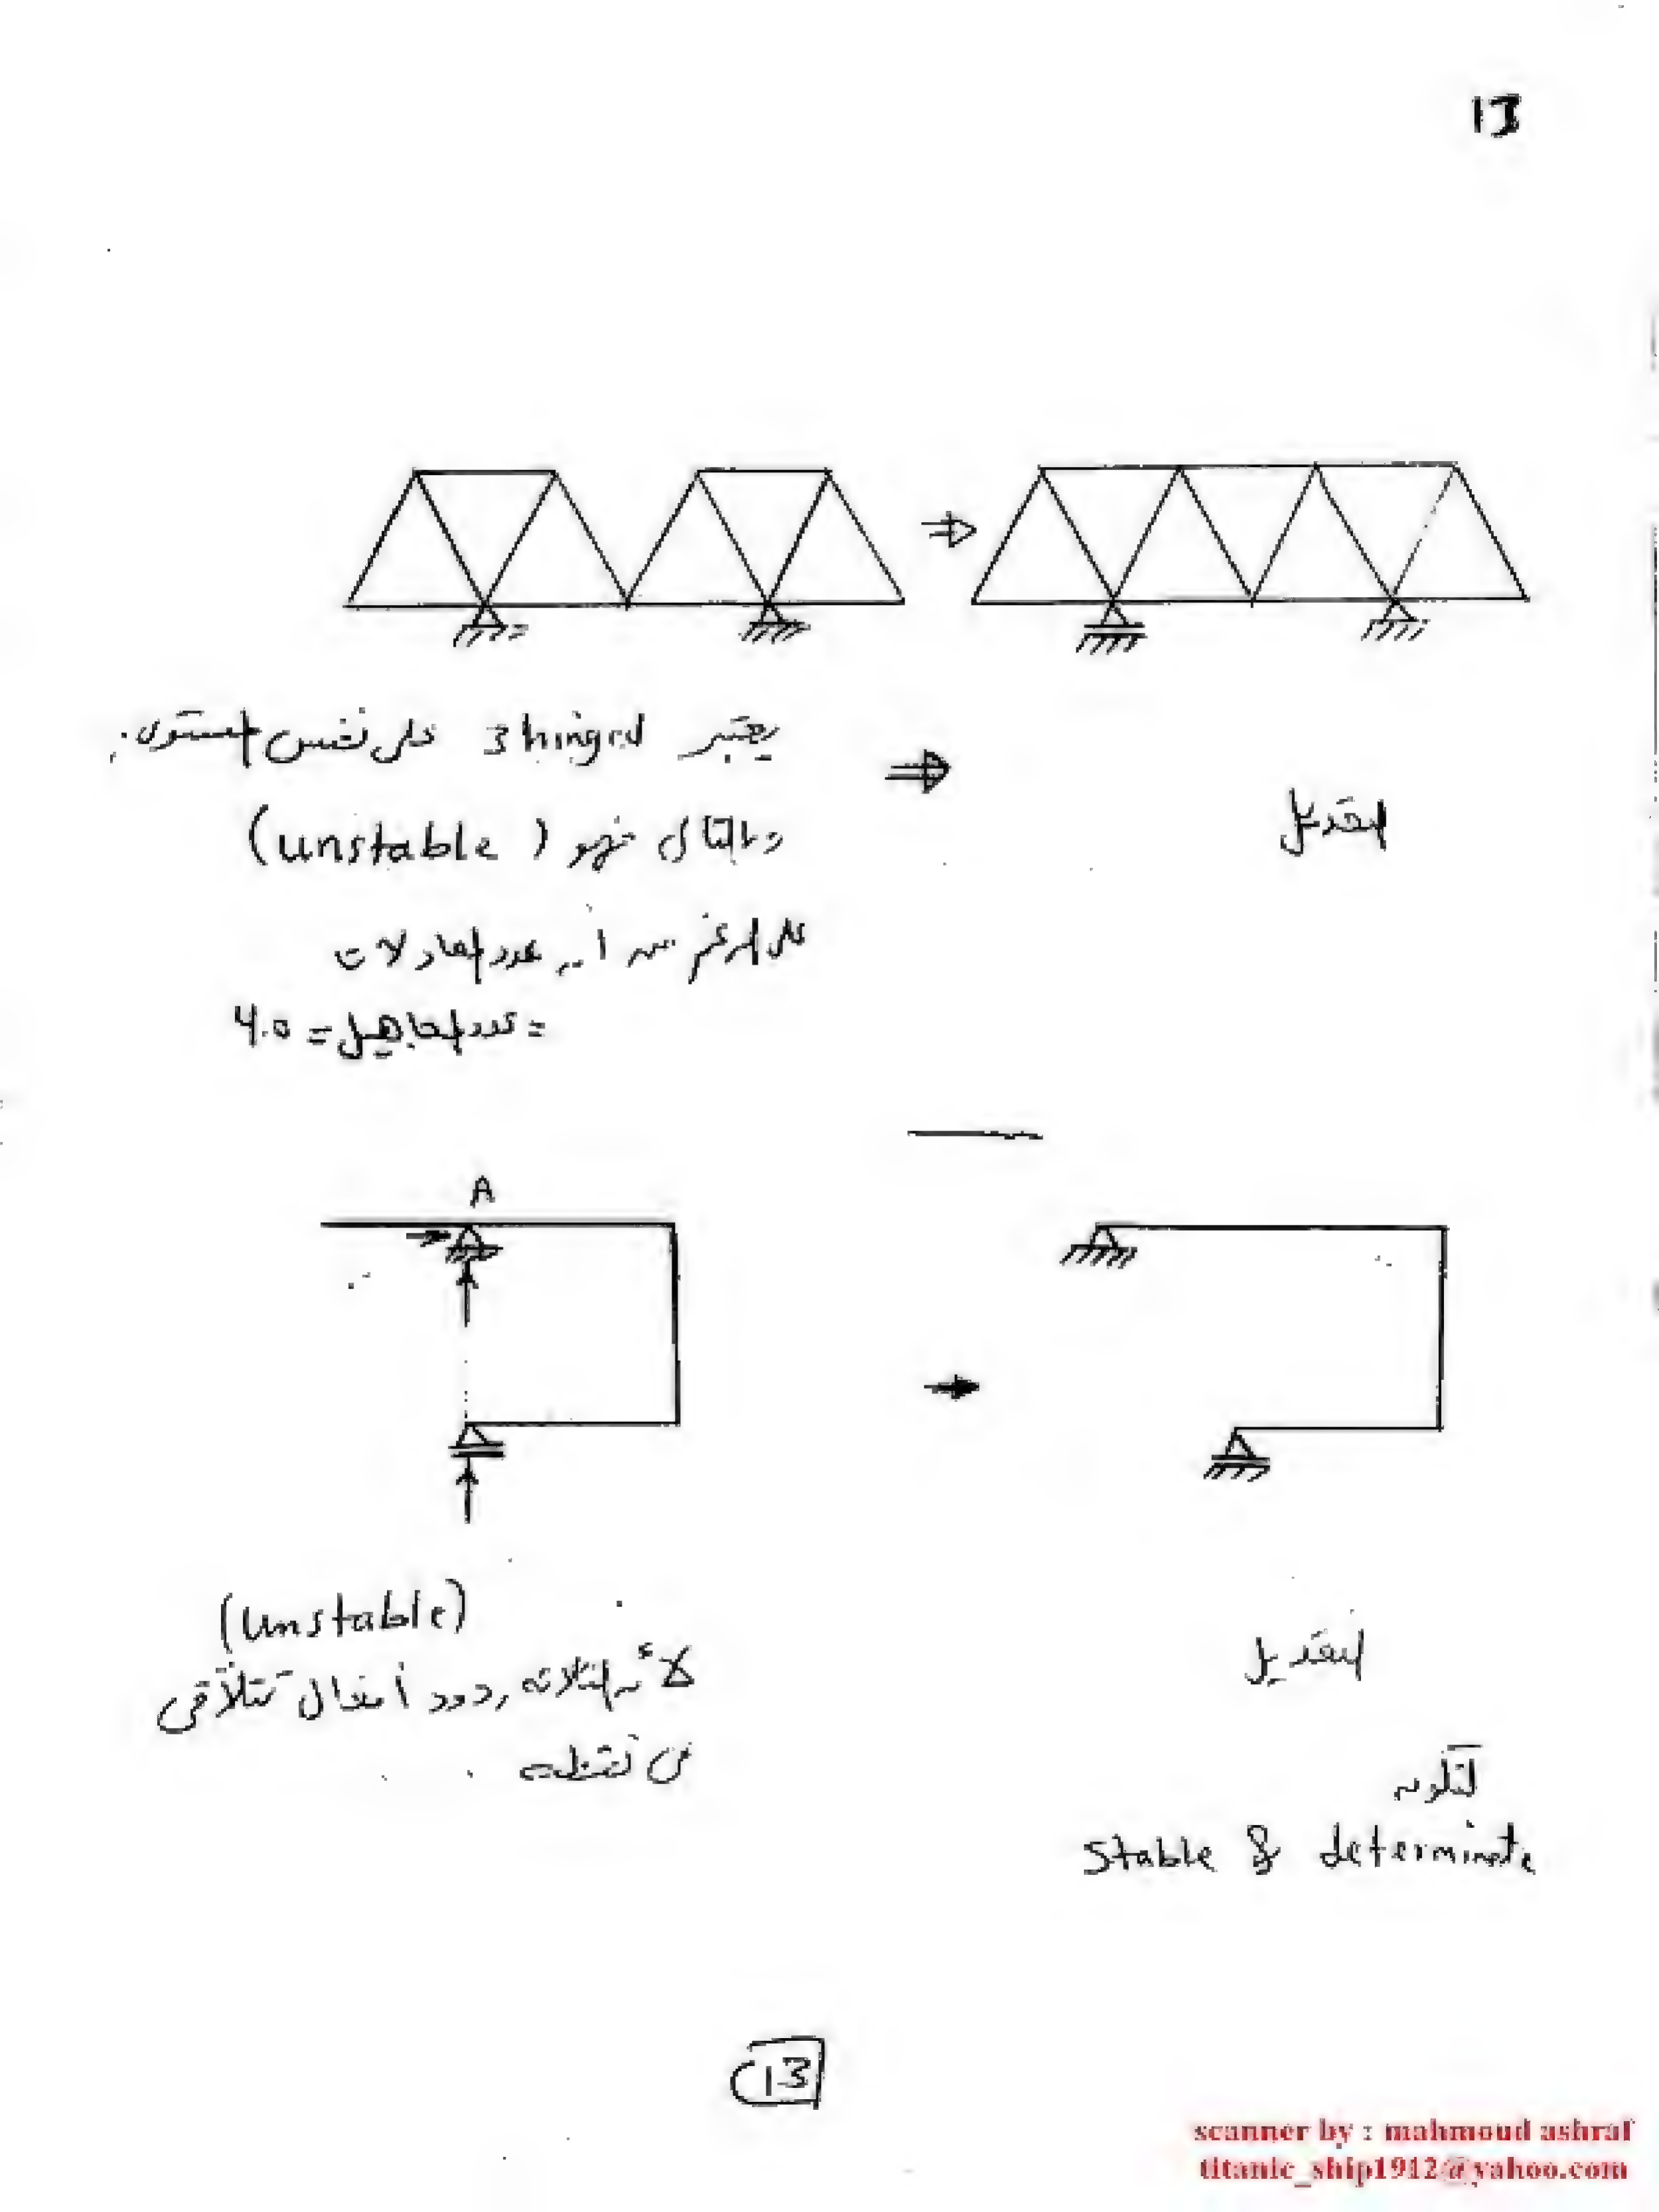 13
يعتبر 3 hinged على نفس المستوى.
وبالتالى فهو (unstable)
التعديل
على الرغم من أن عدد المعادلات
= عدد المجاهيل = 4.0
A
(unstable)
لأن الثلاثة ردود أفعال تتلاقى
فى نقطه
التعديل
لتكون
stable & determinate
13
scanner by : mahmoud ashraf
titanic_ship1912@yahoo.com